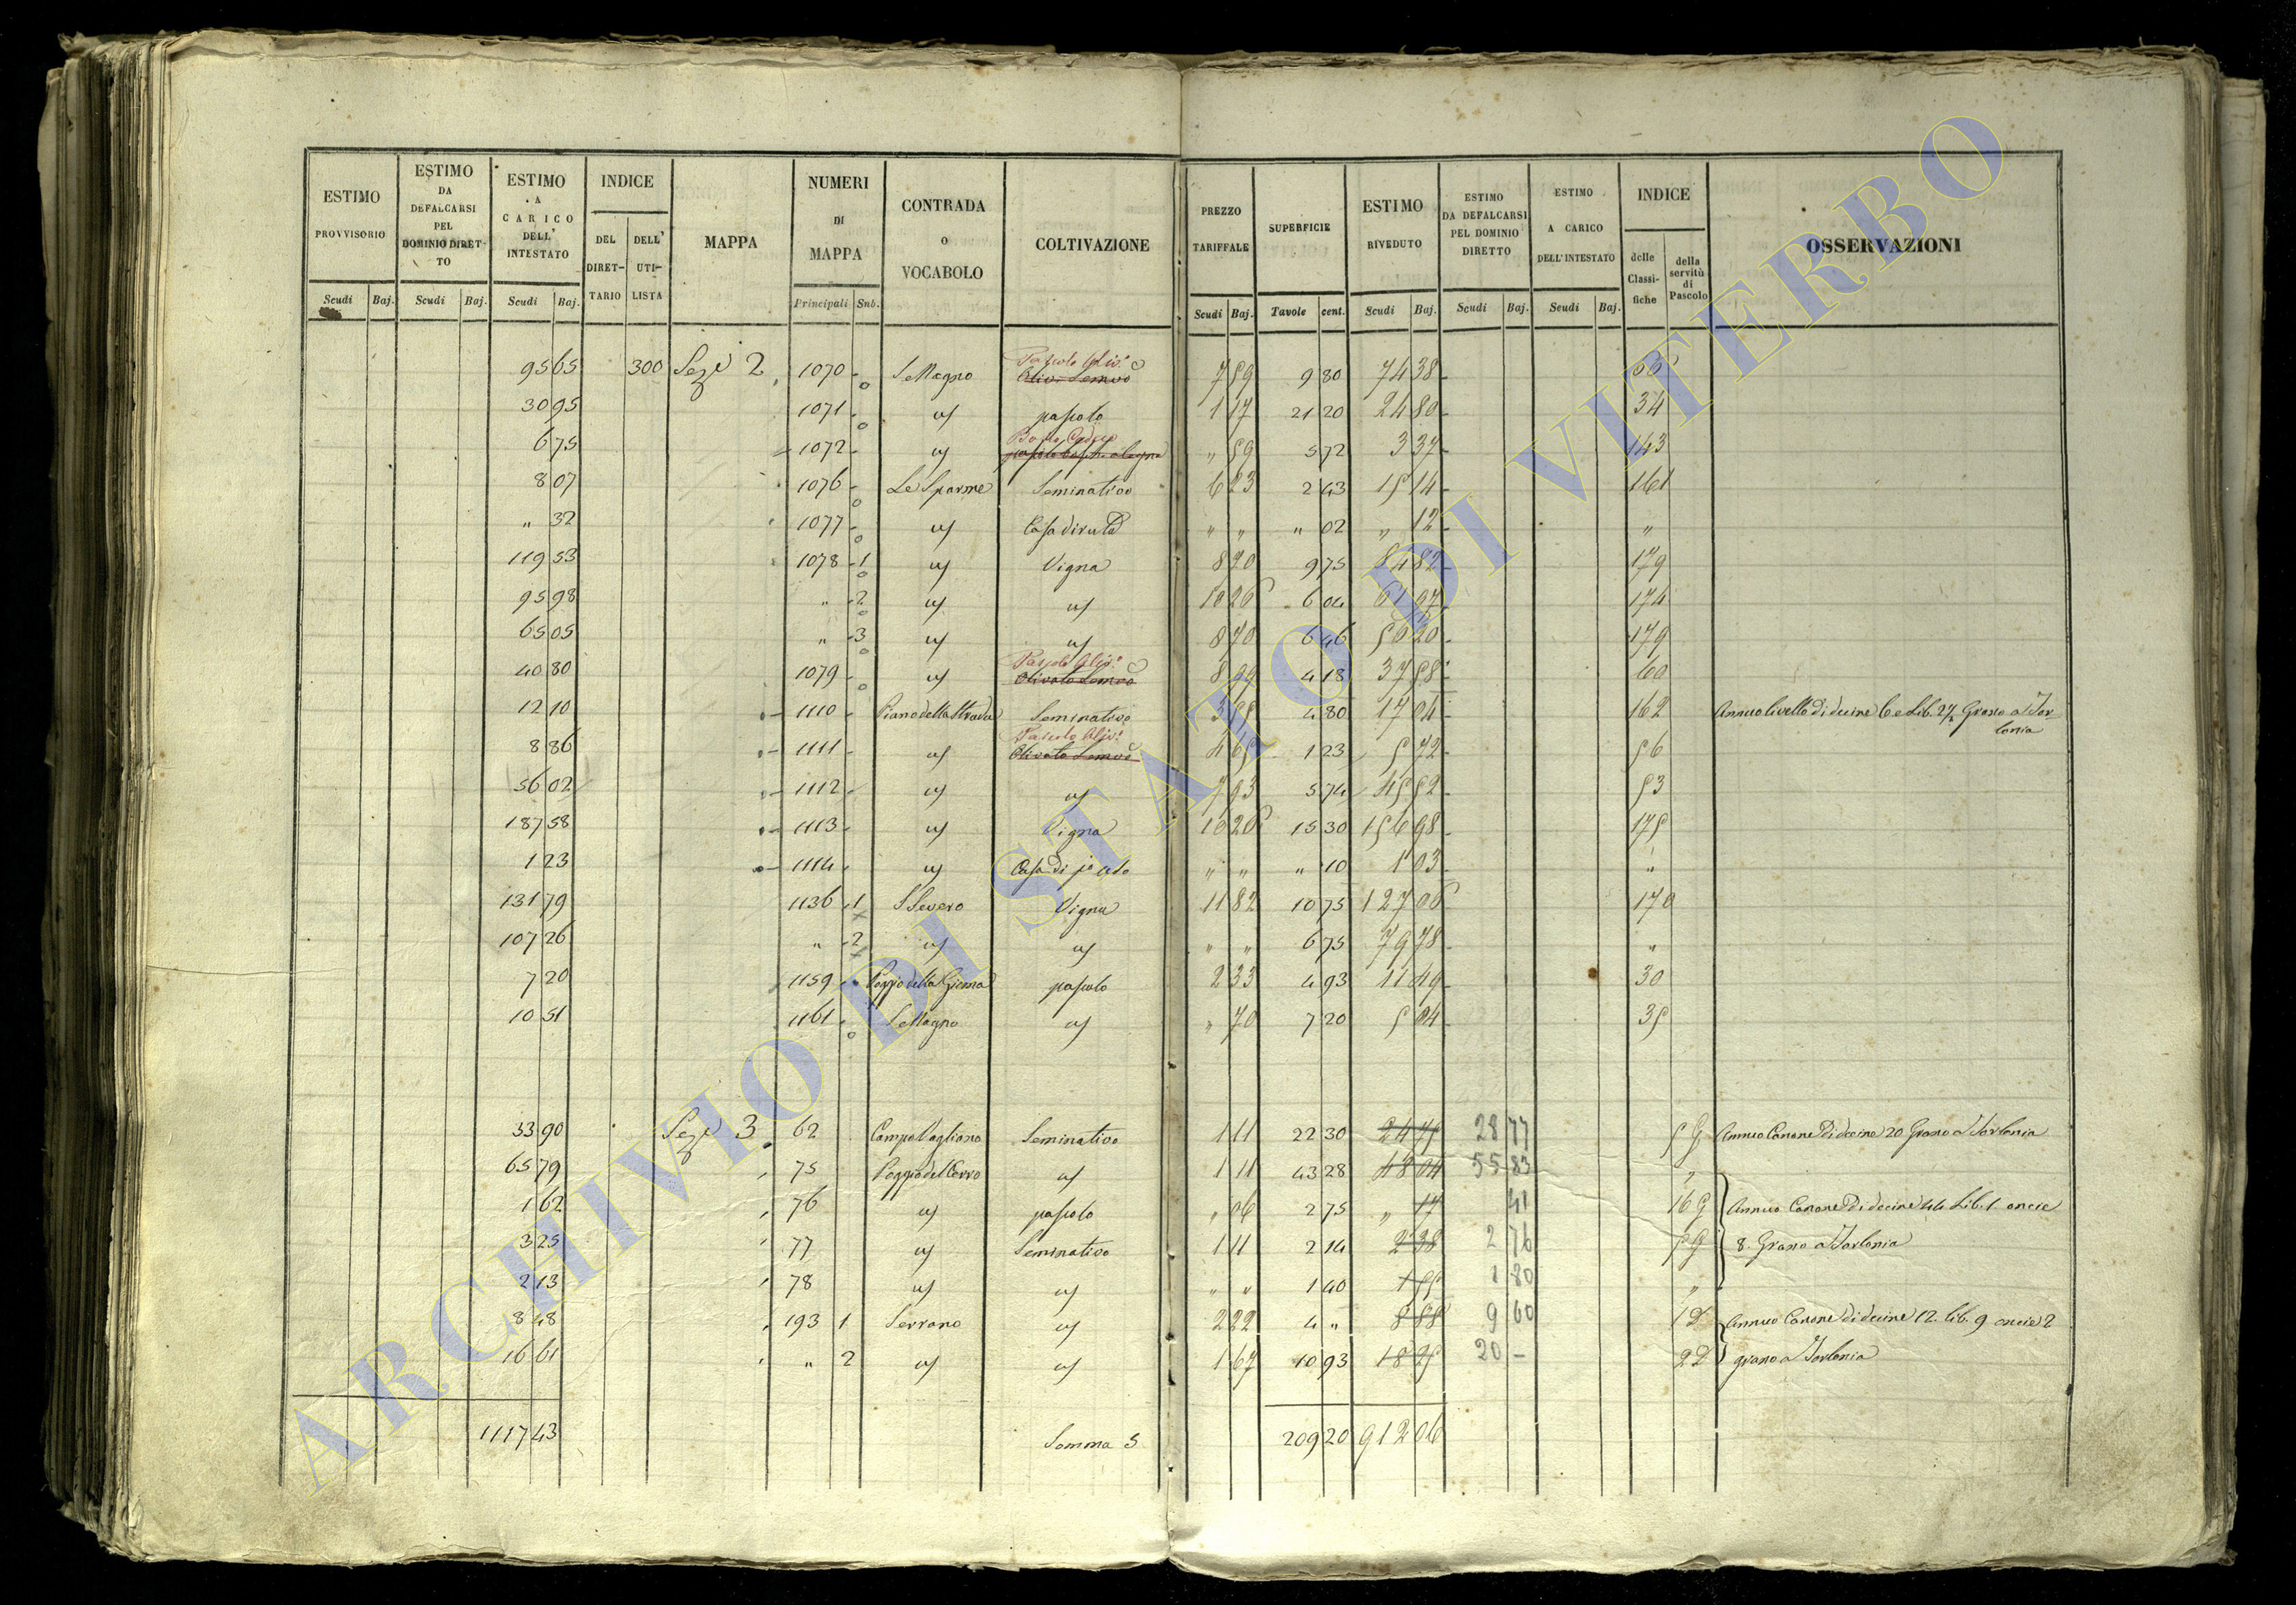 ESTIMO PROVVISORIO Scudi Baj.
ESTIMO DA DEFALCARSI PEL DOMINIO DIRETTO Scudi Baj.
ESTIMO A CARICO DELL' INTESTATO Scudi Baj.
INDICE DEL DIRETTARIO DELL' UTILISTA
MAPPA
NUMERI DI MAPPA Principali Sub.
CONTRADA O VOCABOLO
COLTIVAZIONE
PREZZO TARIFFALE Scudi Baj.
SUPERFICIE Tavole cent.
ESTIMO RIVEDUTO Scudi Baj.
ESTIMO DA DEFALCARSI PEL DOMINIO DIRETTO Scudi Baj.
ESTIMO A CARICO DELL'INTESTATO Scudi Baj.
INDICE delle Classifiche della servitù di Pascolo
OSSERVAZIONI
95 65 300 Seze 2 1070 S. Magno Pascolo Oliv.o 7 59 9 80 74 38
30 95 1071 pascolo 1 17 21 20 24 80 34
6 75 1072 Bosco Ceduo " 59 5 72 3 37 143
8 07 1076 Le Sparme Seminativo 6 23 2 43 15 14 161
" 32 1077 Casa diruta " " " 02 " 12 "
119 53 1078 1 Vigna 8 70 9 75 84 82 179
95 98 " 2 10 26 6 04 61 97 174
65 05 " 3 8 70 6 46 56 20 179
40 80 1079 Pascolo Oliv.o Olivato Semvo 8 99 4 18 37 58 60
12 10 1110 Piano della Strada Seminativo 3 55 4 80 17 04 162 Annuo livello di decine 6 e Lib. 2½ Grano a Torlonia
8 86 1111 Pascolo Oliv.o Olivato Semvo 4 65 1 23 5 72 56
56 02 1112 7 93 5 74 45 52 53
187 58 1113 Vigna 10 26 15 30 156 98 175
1 23 1114 Casa di po uso " " " 10 1 03 "
131 79 1136 1 S. Severo Vigna 11 82 10 75 127 06 170
107 26 " 2 " " 6 75 79 78 "
7 20 1159 Poggio della Gioma pascolo 2 33 4 93 11 49 30
10 51 1161 S. Magno " 70 7 20 5 04 35
33 90 Seze 3 62 Campo Vagliano Seminativo 1 11 22 30 24 75 28 77 5 G Annuo Canone di decine 20 Grano a Torlonia
65 79 75 Poggio del Cerro 1 11 43 28 48 04 55 83 "
1 62 76 pascolo " 06 2 75 " 17 41 16 G Annuo Canone di decine 44 Lib. 1 oncie
3 25 77 Seminativo 1 11 2 14 2 38 2 76 5 G 8. Grano a Torlonia
2 13 78 " " 1 40 1 55 1 80 "
8 48 193 1 Serrano 2 22 4 " 8 88 9 60 1 D Annuo Canone di decine 12. Lib. 9 oncie 2
16 61 " 2 1 67 10 93 18 25 20 - 2 D grano a Torlonia
1117 43 Somma S 209 20 912 06
ARCHIVIO DI STATO DI VITERBO